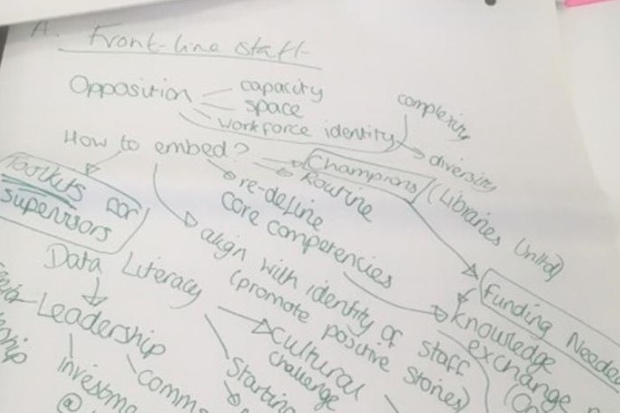 A. Front-line staff
Opposition
capacity
space
workforce identity
complexity
diversity
How to embed?
Champions
(Libraries United)
Routine
Toolkits for
supervisors
re-define
core competencies
align with identity of staff
(promote positive stories)
Funding Needed
Knowledge
exchange
Data Literacy
Leadership
cultural
challenge
Starting
comms
@